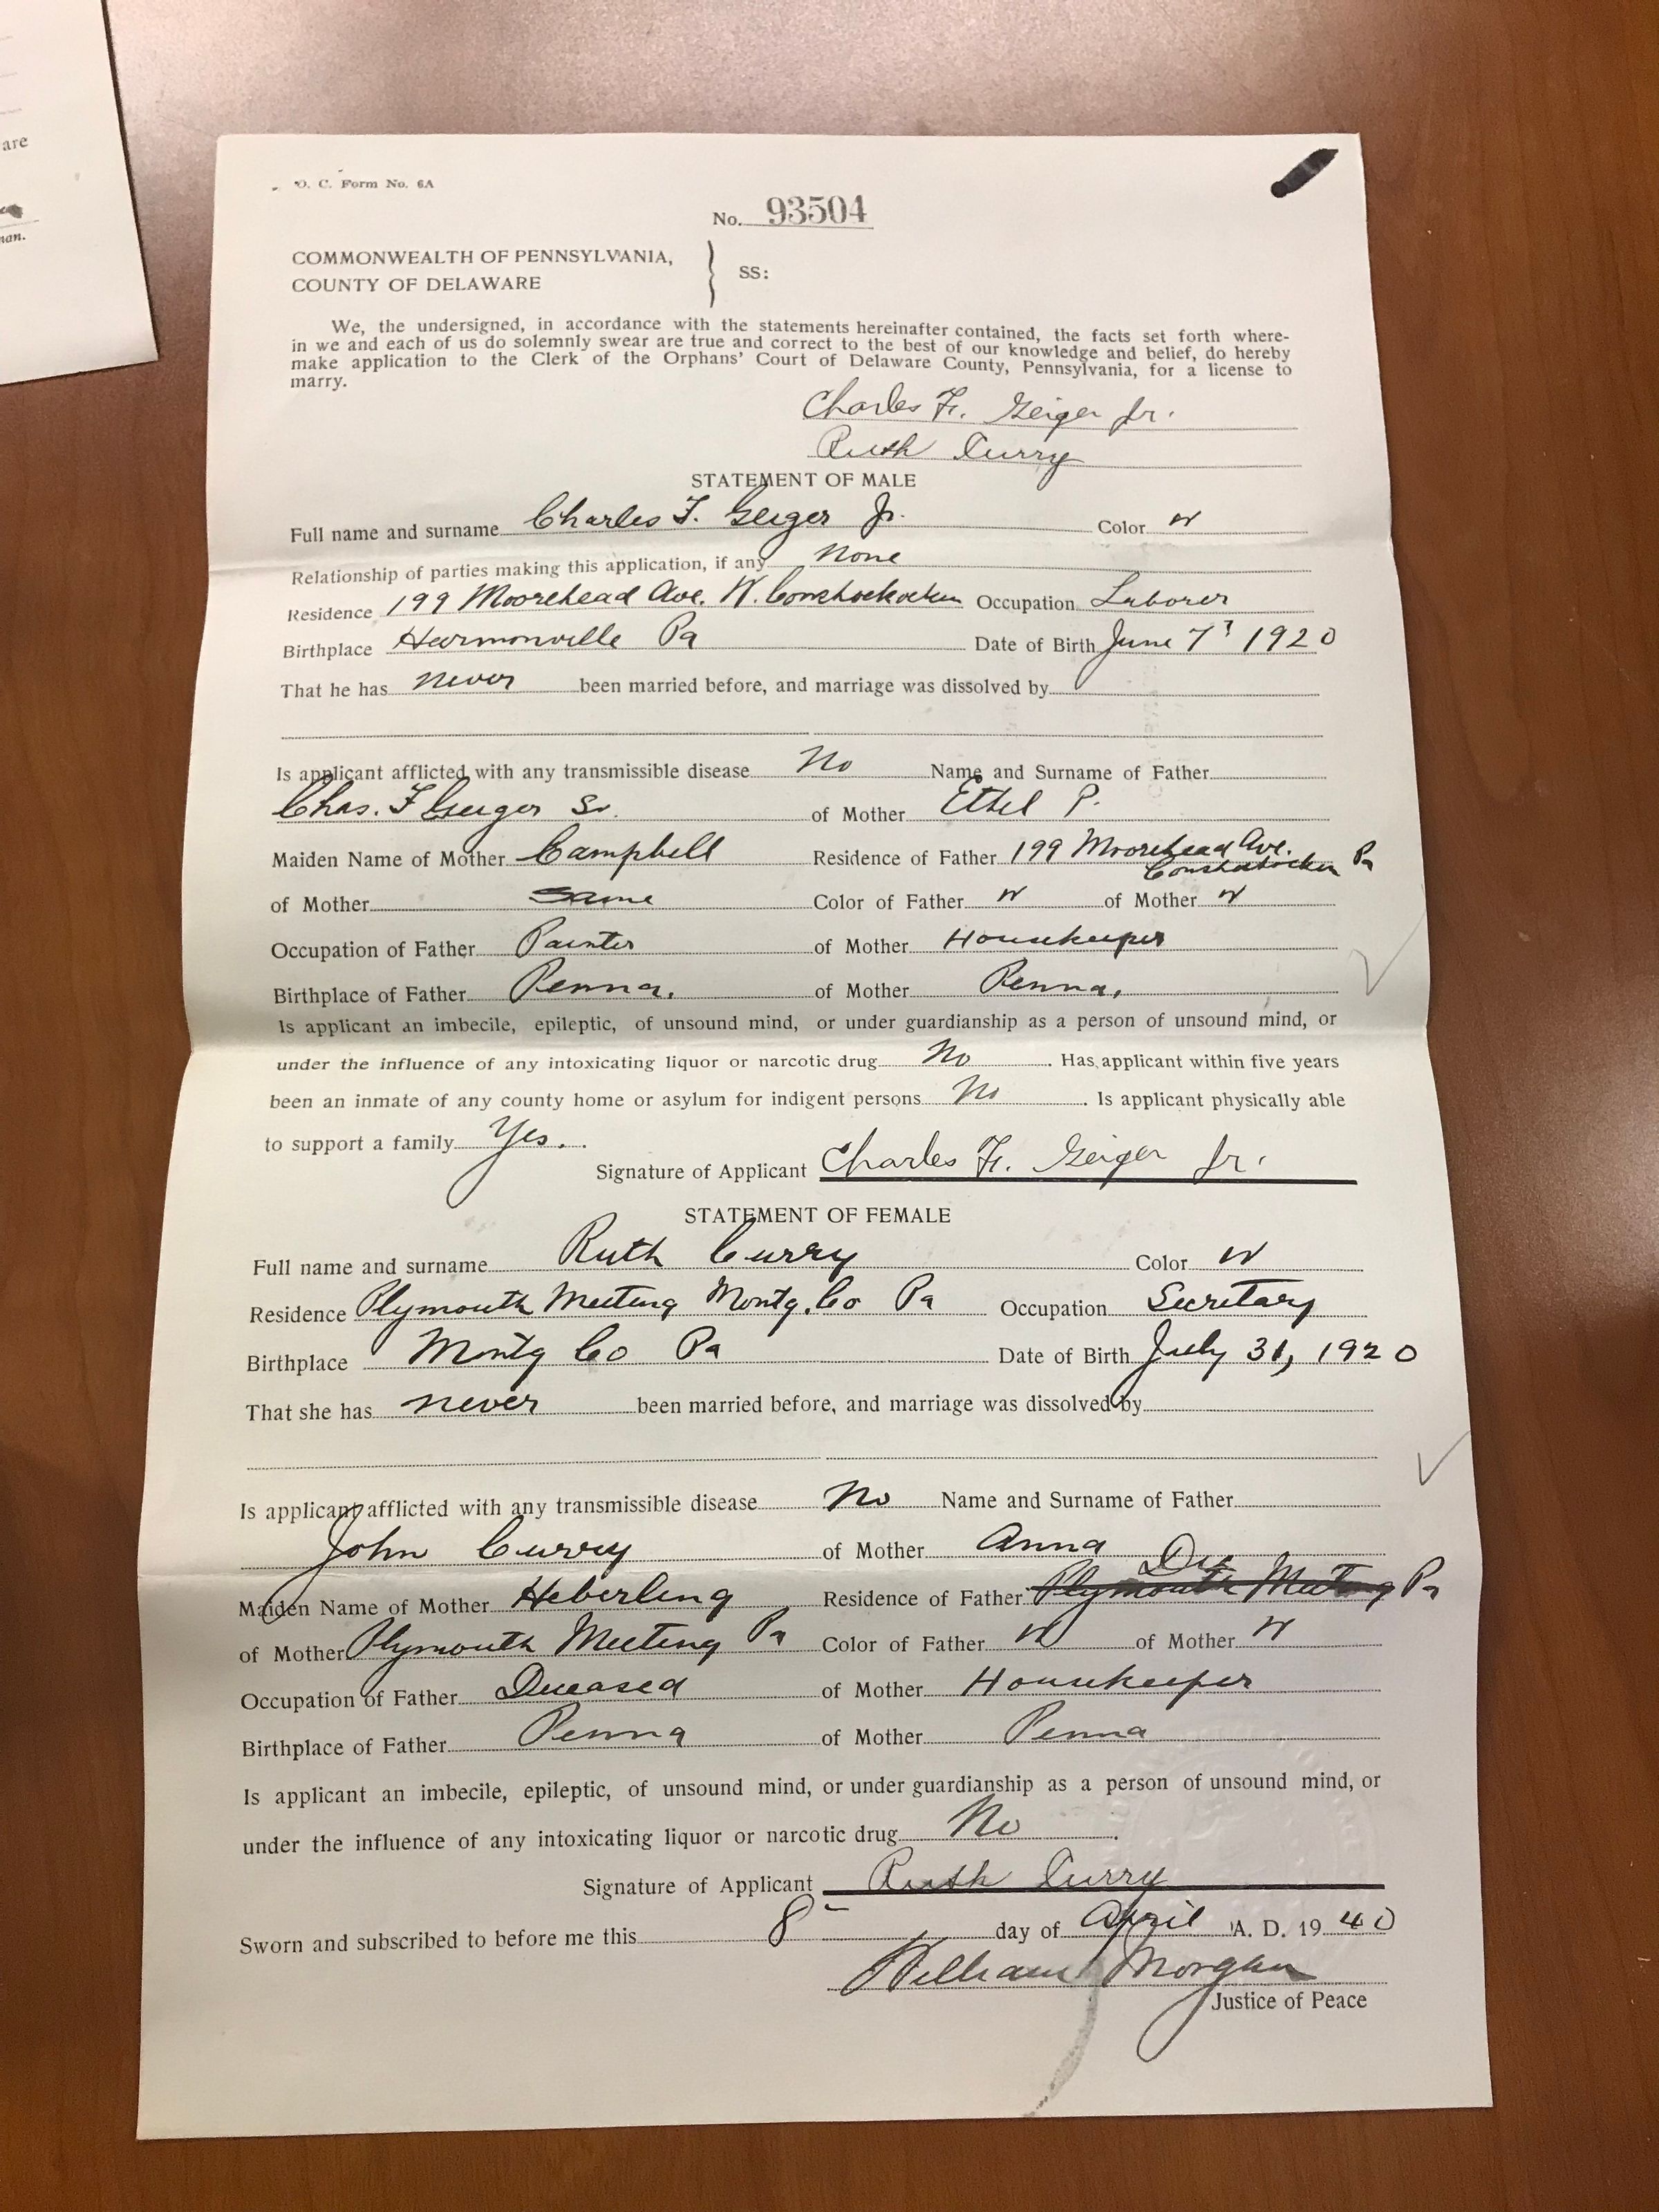 are
man.
O. C. Form No. 6A
No. 93504
COMMONWEALTH OF PENNSYLVANIA,
COUNTY OF DELAWARE
SS:
We, the undersigned, in accordance with the statements hereinafter contained, the facts set forth where-
in we and each of us do solemnly swear are true and correct to the best of our knowledge and belief, do hereby
make application to the Clerk of the Orphans' Court of Delaware County, Pennsylvania, for a license to
marry.
Charles F. Geiger Jr.
Ruth Curry
STATEMENT OF MALE
Full name and surname Charles F. Geiger Jr. Color W
Relationship of parties making this application, if any None
Residence 199 Moorehead Ave. W. Conshohocken Occupation Laborer
Birthplace Harmonville Pa Date of Birth June 7 1920
That he has never been married before, and marriage was dissolved by
Is applicant afflicted with any transmissible disease No Name and Surname of Father
Chas. F Geiger Sr. of Mother Ethel P.
Maiden Name of Mother Campbell Residence of Father 199 Moorehead Ave. Conshohocken Pa
of Mother Same Color of Father W of Mother W
Occupation of Father Painter of Mother Housekeeper
Birthplace of Father Penna. of Mother Penna.
Is applicant an imbecile, epileptic, of unsound mind, or under guardianship as a person of unsound mind, or
under the influence of any intoxicating liquor or narcotic drug No . Has applicant within five years
been an inmate of any county home or asylum for indigent persons No . Is applicant physically able
to support a family Yes.
Signature of Applicant Charles F. Geiger Jr.
STATEMENT OF FEMALE
Full name and surname Ruth Curry Color W
Residence Plymouth Meeting Montg. Co Pa Occupation Secretary
Birthplace Montg Co Pa Date of Birth July 31, 1920
That she has never been married before, and marriage was dissolved by
Is applicant afflicted with any transmissible disease No Name and Surname of Father
John Curry of Mother Anna
Maiden Name of Mother Heberling Residence of Father Plymouth Meeting Pa
of Mother Plymouth Meeting Pa Color of Father W of Mother W
Occupation of Father Deceased of Mother Housekeeper
Birthplace of Father Penna of Mother Penna
Is applicant an imbecile, epileptic, of unsound mind, or under guardianship as a person of unsound mind, or
under the influence of any intoxicating liquor or narcotic drug No .
Signature of Applicant Ruth Curry
Sworn and subscribed to before me this 8 day of April A. D. 1940
William Morgan
Justice of Peace